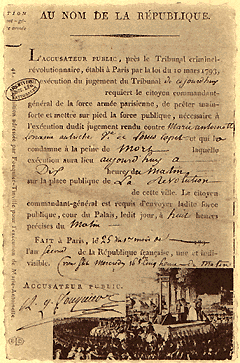 AU NOM DE LA RÉPUBLIQUE.
L'ACCUSATEUR PUBLIC, près le Tribunal criminel-
révolutionnaire, établi à Paris par la loi du 10 mars 1793,
exécution du jugement du Tribunal de ce jourd'huy
requiert le citoyen commandant-
général de la force armée parisienne, de prêter main-
forte et mettre sur pied la force publique, nécessaire à
l'exécution dudit jugement rendu contre Marie antoinette
Lorraine Ve de Louis Capet et qui la
condamne à la peine de Mort laquelle
exécution aura lieu aujourd'huy à
Dix heures du Matin
sur la place publique de La Révolution
de cette ville. Le citoyen
commandant-général est requis d'envoyer ladite force
publique, cour du Palais, ledit jour, à huit heures
précises du Matin
FAIT à Paris, le 25
l'an second de la République française, une et indi-
visible.
ACCUSATEUR PUBLIC.